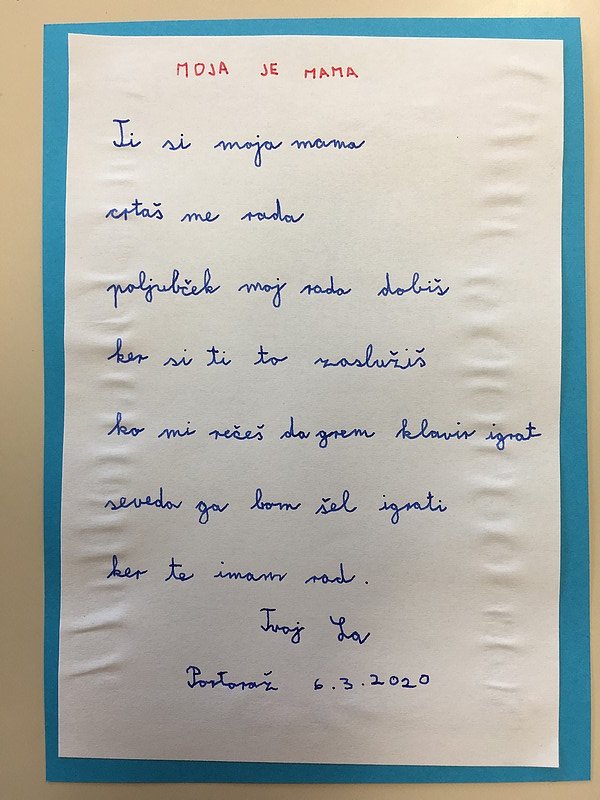 MOJA JE MAMA
Ti si moja mama
crtaš me rada
poljubček moj rada dobiš
ker si ti to zaslužiš
ko mi rečeš da grem klavir igrat
seveda ga bom šel igrati
ker te imam rad.
Tvoj La
Portoraž 6.3.2020